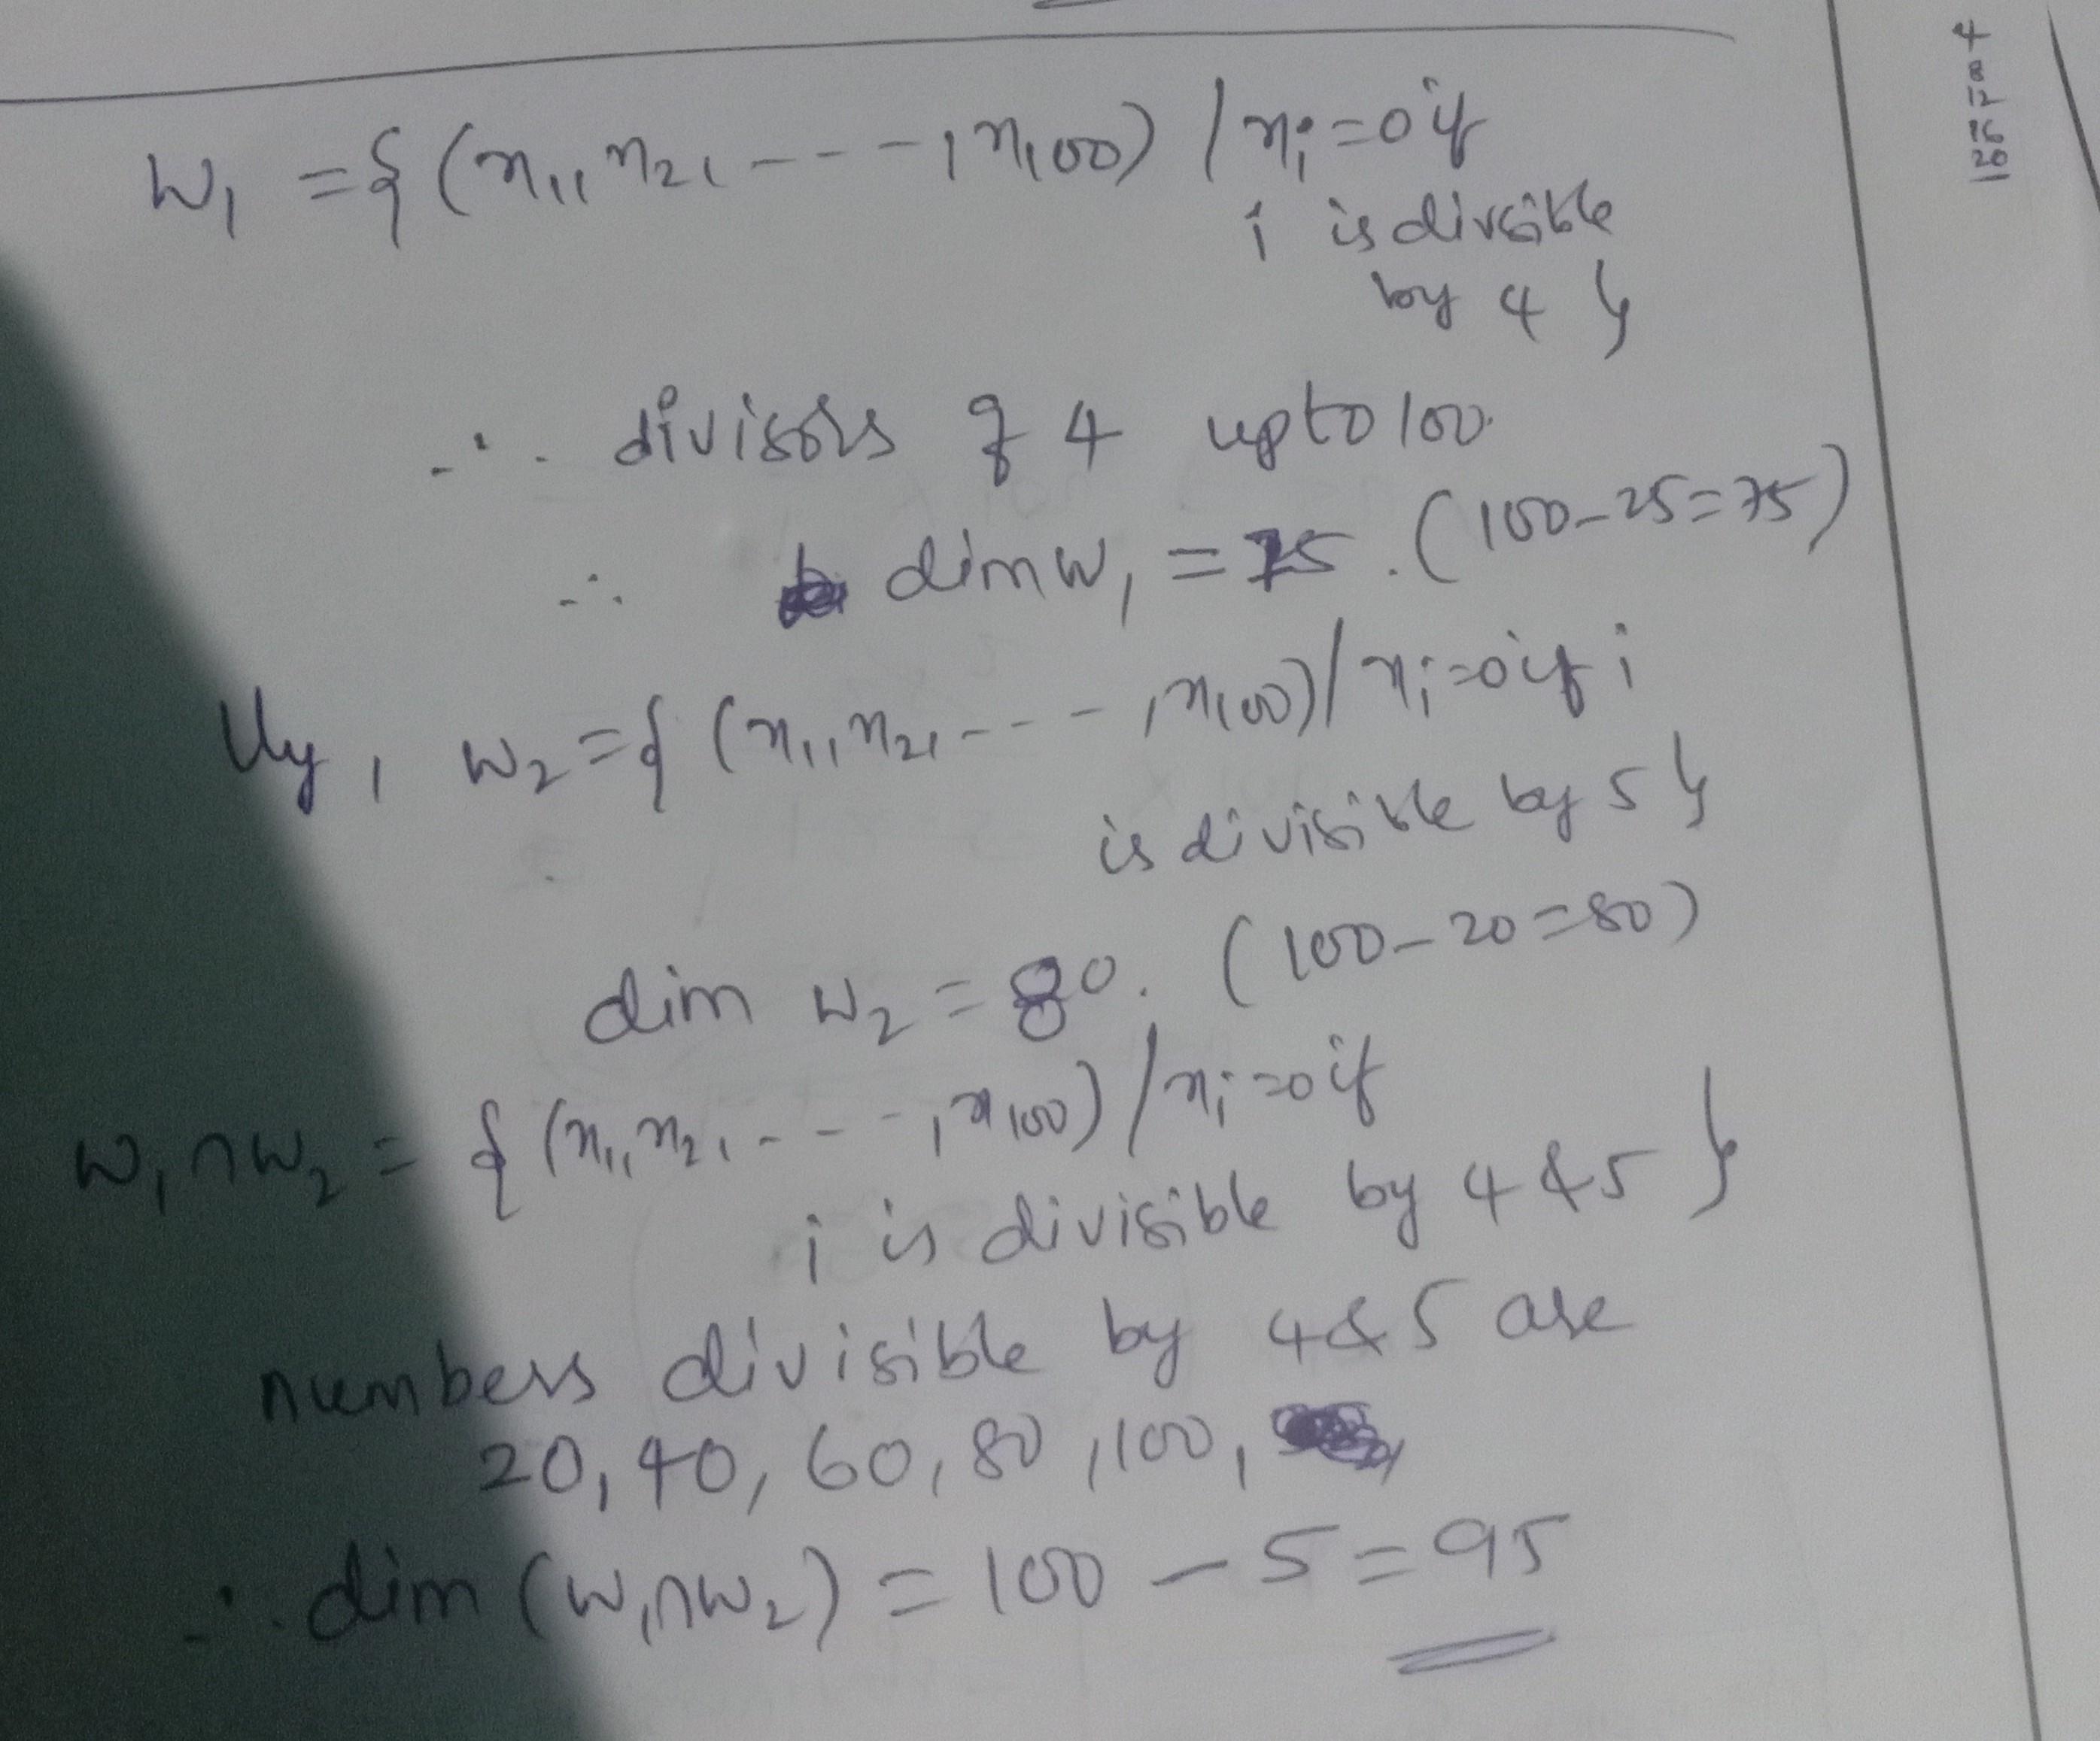 W₁ = { (x₁, x₂, - - - -, x₁₀₀) / xᵢ = 0 if
i is divisible
by 4 }
∴ divisors of 4 upto 100.
∴ dim W₁ = 75. (100 - 25 = 75)
lly, W₂ = { (x₁, x₂, - - - -, x₁₀₀) / xᵢ = 0 if i
is divisible by 5 }
dim W₂ = 80. (100 - 20 = 80)
W₁ ∩ W₂ = { (x₁, x₂, - - - -, x₁₀₀) / xᵢ = 0 if
i is divisible by 4 & 5 }
numbers divisible by 4 & 5 are
20, 40, 60, 80, 100,
∴ dim (W₁ ∩ W₂) = 100 - 5 = 95